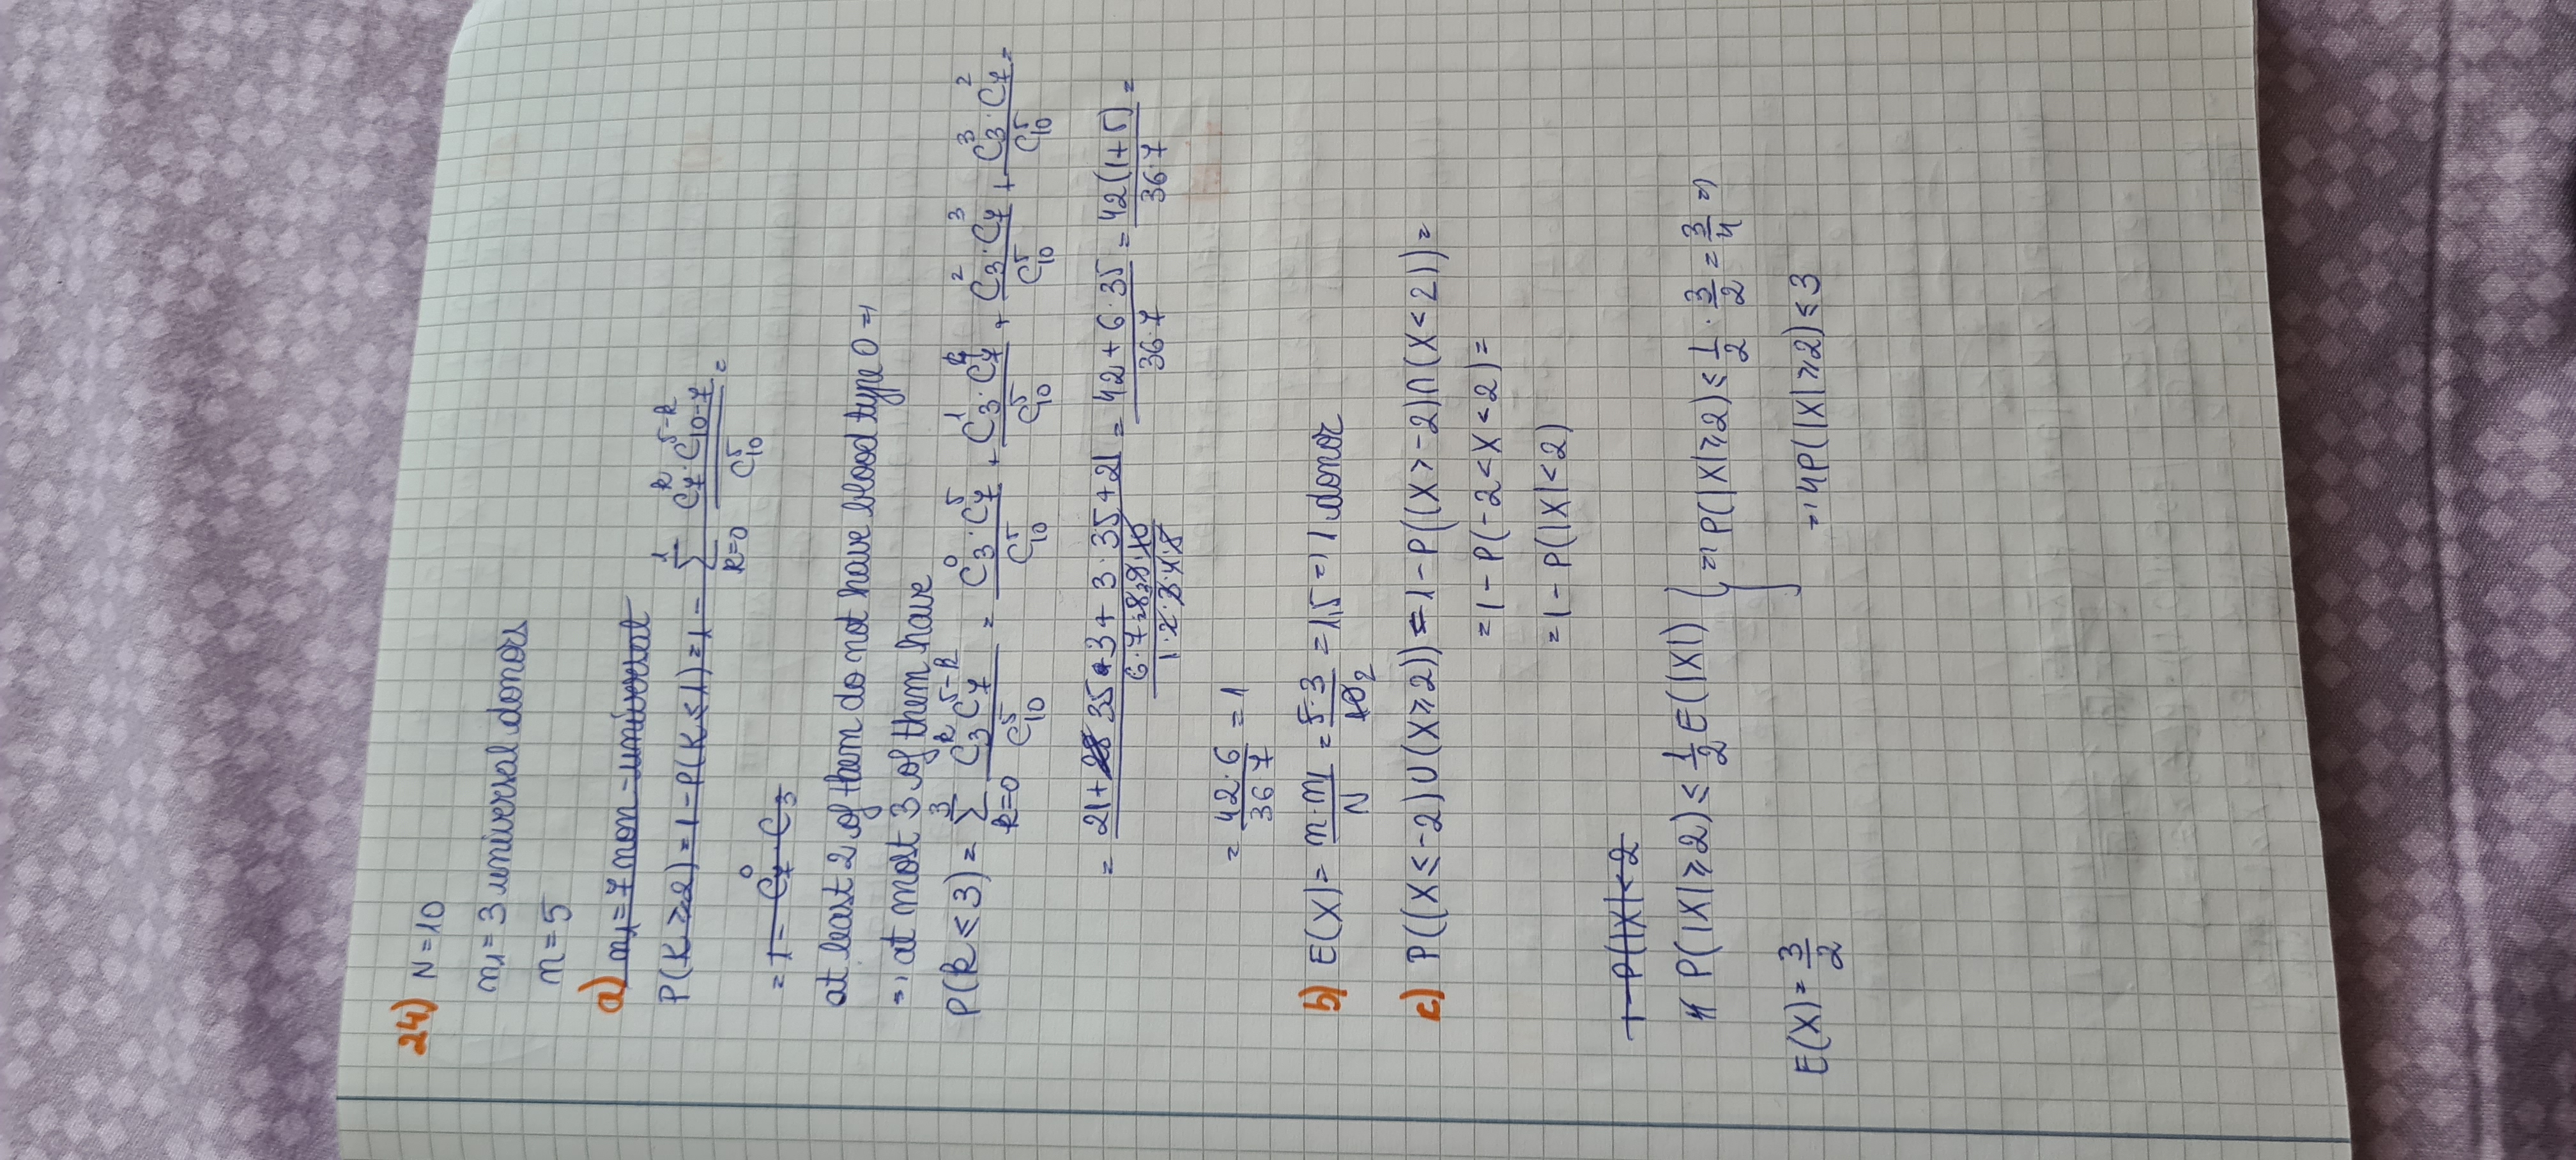 24) N = 10
n₁ = 3 universal donors
n = 5
a) n₁ = 7 non-universal
P(K ≥ 2) = 1 - P(K ≤ 1) = 1 - ∑_{k=0}^{1} (C_7^k · C_{10-7}^{5-k}) / C_{10}^5 =
= 1 - C_7^0 · C_3
at least 2 of them do not have blood type 0 =>
=> at most 3 of them have
P(k ≤ 3) = ∑_{k=0}^{3} (C_3^k C_7^{5-k}) / C_{10}^5 = (C_3^0 · C_7^5) / C_{10}^5 + (C_3^1 · C_7^4) / C_{10}^5 + (C_3^2 · C_7^3) / C_{10}^5 + (C_3^3 · C_7^2) / C_{10}^5 =
= (21 + 28 35 · 3 + 3 · 35 + 21) / ((6 · 7 · 8 · 9 · 10) / (1 · 2 · 3 · 4 · 5)) = (42 + 6 · 35) / (36 · 7) = 42(1 + 5) / (36 · 7) =
= (42 · 6) / (36 · 7) = 1
b) E(X) = (n · n₁) / N = (5 · 3) / (10 2) = 1,5 => 1 donor
c) P((X ≤ -2) ∪ (X ≥ 2)) = 1 - P((X > -2) ∩ (X < 2)) =
= 1 - P(-2 < X < 2) =
= 1 - P(|X| < 2)
1 - P(|X| < 2
P(|X| ≥ 2) ≤ 1/2 E(|X|) } => P(|X| ≥ 2) ≤ 1/2 · 3/2 = 3/4 =>
E(X) = 3/2
=> 4P(|X| ≥ 2) ≤ 3